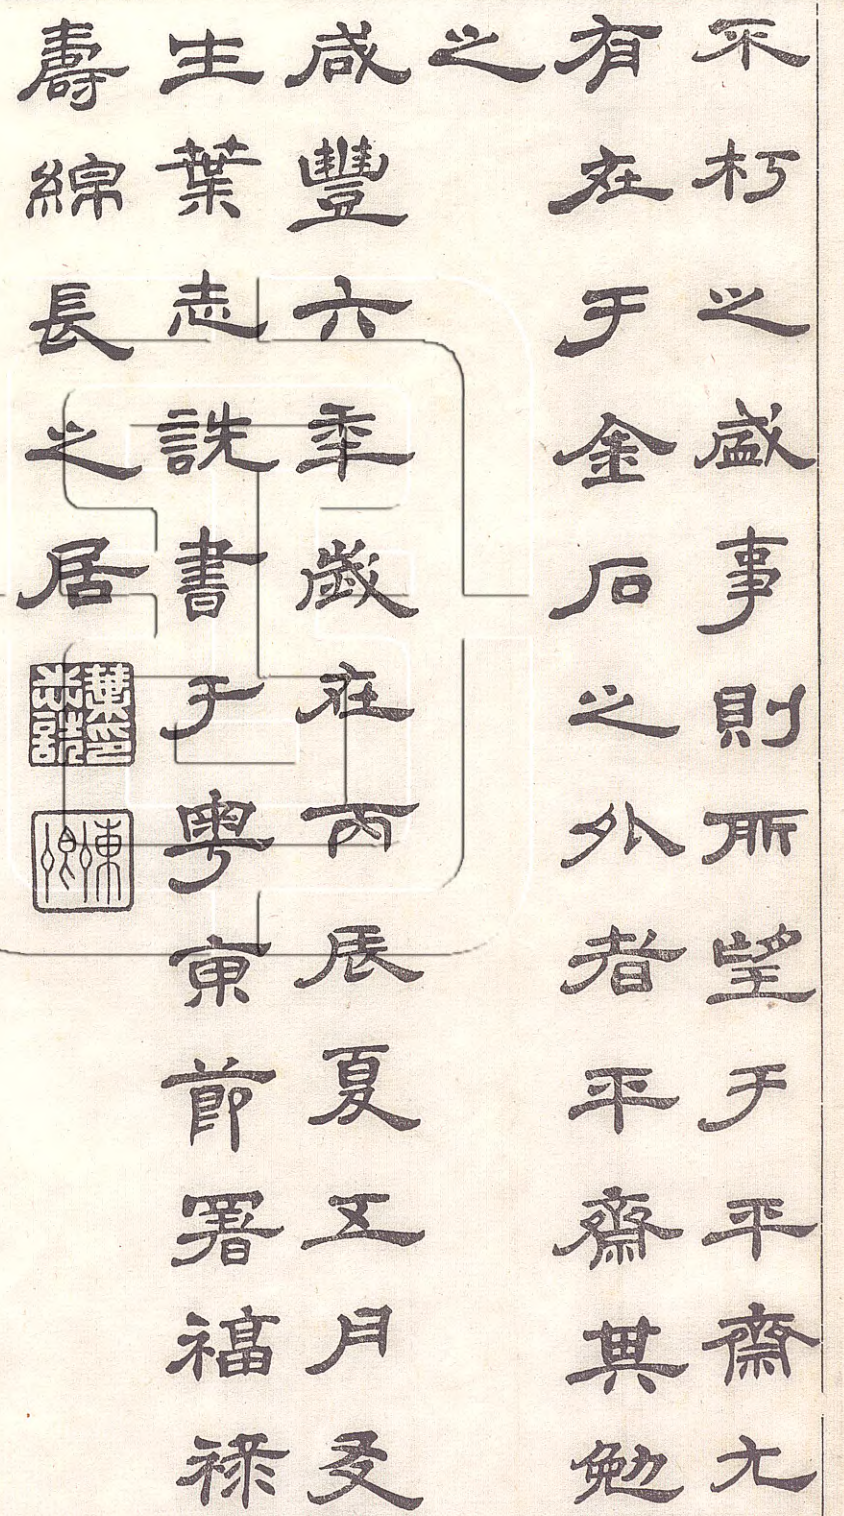 不朽之盛事則所望于平齋尢
有在于金石之外者平齋其勉
之
咸豐六年歲在丙辰夏五月叟
生葉志詵書于粤東節署福禄
壽綿長之居
葉印志詵
東卿